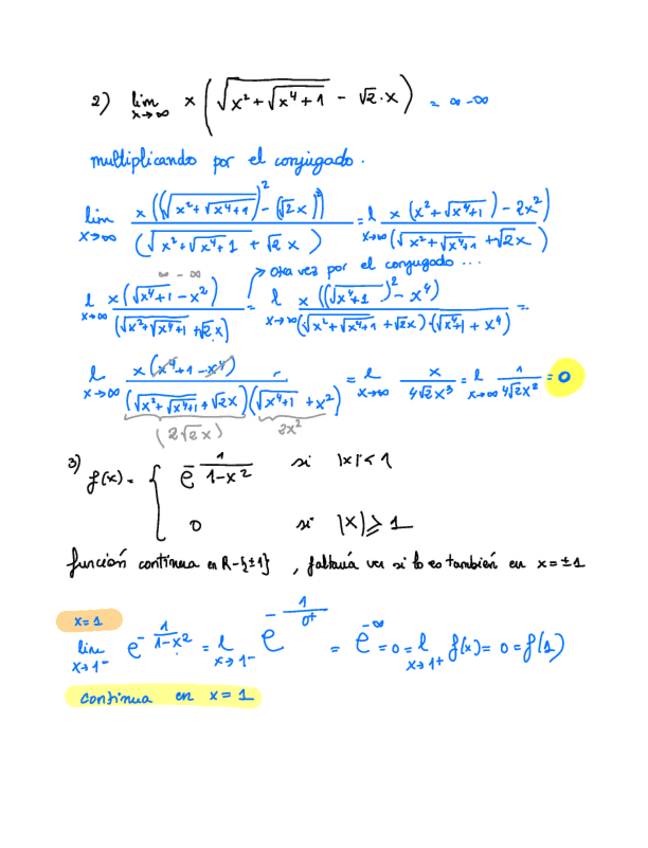 2) lim x→∞ x (√(x² + √(x⁴+1)) - √2·x) = ∞ - ∞
multiplicando por el conjugado.
lim x→∞ x((√(x² + √(x⁴+1)))² - (√2x)²) / (√(x² + √(x⁴+1)) + √2 x) = l x→∞ x (x² + √(x⁴+1) - 2x²) / (√(x² + √(x⁴+1)) + √2x)
∞ - ∞ → Otra vez por el conjugado ...
l x→∞ x(√(x⁴+1) - x²) / (√(x² + √(x⁴+1)) + √2x) = l x→∞ x ((√(x⁴+1))² - x⁴) / (√(x² + √(x⁴+1)) + √2x)·(√(x⁴+1) + x⁴) =
l x→∞ x(x⁴+1-x⁴) / (√(x² + √(x⁴+1)) + √2x)(√(x⁴+1) + x²) = l x→∞ x / 4√2x³ = l x→∞ 1 / 4√2x² = 0
(2√2x) 2x²
3) f(x) = { e^(-1/(1-x²)) si |x| < 1
0 si |x| ⩾ 1
función continua en R-{±1} , faltaría ver si lo es también en x = ±1
x=1
lim x→1⁻ e^(-1/(1-x²)) = l x→1⁻ e^(-1/0⁺) = e^(-∞) = 0 = l x→1⁺ f(x) = 0 = f(1)
continua en x = 1